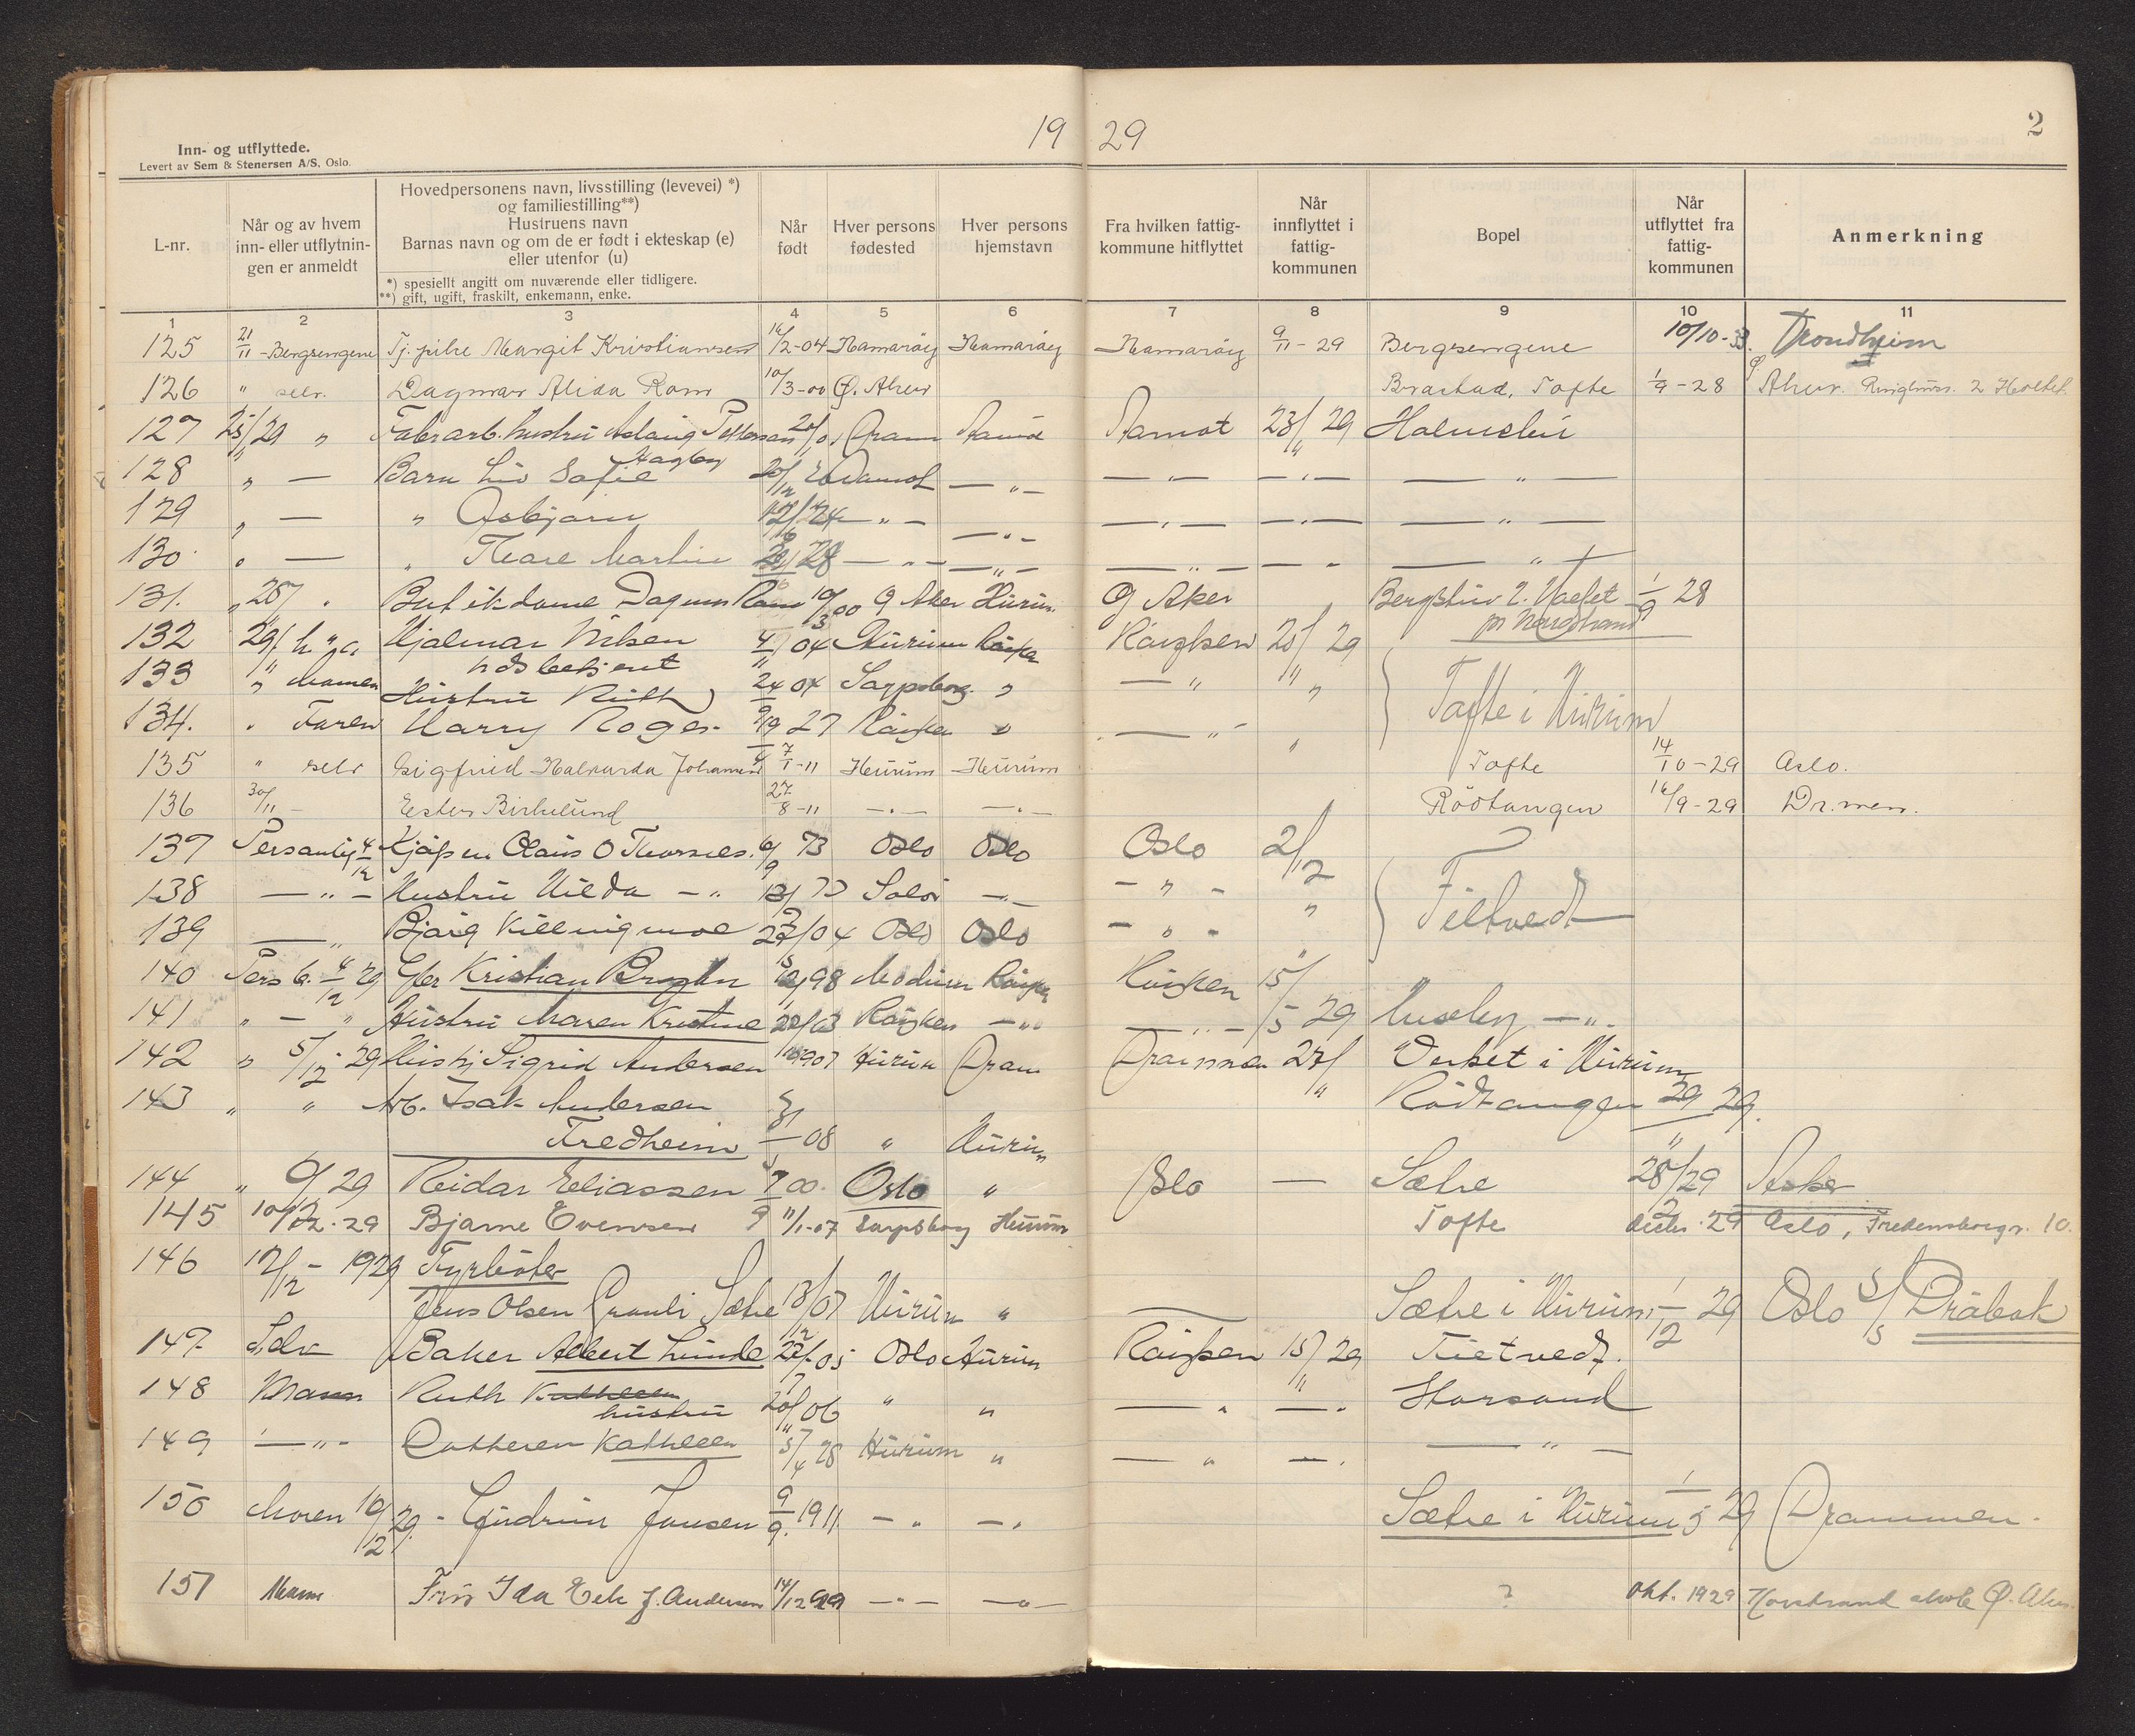 19 29
2
Inn- og utflyttede.
Levert av Sem & Stenersen A/S, Oslo.
L-nr.
Når og av hvem inn- eller utflytnin- gen er anmeldt
Hovedpersonens navn, livsstilling (levevei) *) og familiestilling**)
Hustruens navn
Barnas navn og om de er født i ekteskap (e) eller utenfor (u)
*) spesiellt angitt om nuværende eller tidligere.
**) gift, ugift, fraskilt, enkemann, enke.
Når født
Hver persons fødested
Hver persons hjemstavn
Fra hvilken fattig- kommune hitflyttet
Når innflyttet i fattig- kommunen
Bopel
Når utflyttet fra fattig- kommunen
Anmerkning
1 2 3 4 5 6 7 8 9 10 11
125 21/11 - Bergsengene Tj. pike Margit Kristiansen 16/2-04 Hamarøy Hamarøy Hamarøy 9/11 - 29 Bergsengene 10/10-33. Trondheim
126 " selv. Dagmar Alida Rom 10/3-00 Ø. Aker Brastad, Tofte 1/9 - 28 Ø Aker.
127 25/11 29 " Fabr arb. hustru Aslaug Pettersen 20/ 01 Dram Aamot 23/11 29 Holmsbu
Hagby
128 " — Barn Liv Sofie 20/12 Aamot — " — — " — — " — — " —
129 " — " Asbjørn 24 — " — — " — — " — — " — — " —
130 " — " Kaare Martin 28 — " — — " — — " — — " — — " —
131. " 25/ " Butikdame Dagmar Rom 10/3 00 Ø Aker Hurum Ø Aker 1/9 28
pr Nordstrand
132 29/11 h " a Hjalmar Nilsen 4/ 04 Hurum Røyken Røyken 20/11 29
133 " Mannen Hustru Ruth 24 04 Sarpsborg " — " "
134. " Faren Harry Roger 19 27 Røyken " — " — " Tofte i Hurum
135 " selv Sigfrid Halvarda Johansen 7/1-11 Hurum Hurum Tofte 14/10-29 Oslo.
136 30/11 - Ester Birkelund 27/8-11 — " — — " — Rødtangen 16/9-29 Dr.men.
137 Personlig 4/12 Kjøpm Olaus O Thorsnes. 6/9 73 Oslo Oslo Oslo 2/12
138 — " — Hustru Hilda — " 73 Solør — " — — " — "
139 — " Bjørg 04 Oslo Oslo — " — " Filtvedt
140 Pers b. 4/12 29 Kristian 98 Modum Røyken Røyken 15/5 29
141 " — " Hustru Maren Kristine 20/ 03 Røyken — " — — " —
142 " 5/12 - 29 Husbj Sigrid Andersen 1907 Hurum Dram Drammen 27/11 Verket i Hurum
143 " " Arb. Isak Andersen Rødtangen 29 29.
Fredheim 08 " Hurum
144 " 6/12 29 Reidar Eliassen 00. Oslo " Oslo — Sætre 28/ 29 Asker
145 10/12-29 Bjarne Evensen 11/1-07 Sarpsborg Hurum Tofte decbr. 29 Oslo, Fredensborgv. 10.
146 12/12 - 1929 Fyrbøter
Jens Olsen Granli Sætre 18/12 07 Hurum " Sætre i Hurum 1/12 29 Oslo Drøbak
147 Selv Baker Albert Lunde 22/ 05 Oslo Hurum Røyken 15/11 29 Filtvedt.
148 Mann Ruth Kathleen
hustru 20/ 06 " " — " — " Storsand
149 — " — Datteren Kathleen 5/4 28 Hurum " — " — " — " —
150 Moren 10/12 29. - Gudrun Jensen 9/9. 1911 — " — " Sætre i Hurum 1/5 29 Drammen.
151 Mann Fru Ida 14/12 — " — — " — ? okt. 1929 Ø. Aker.